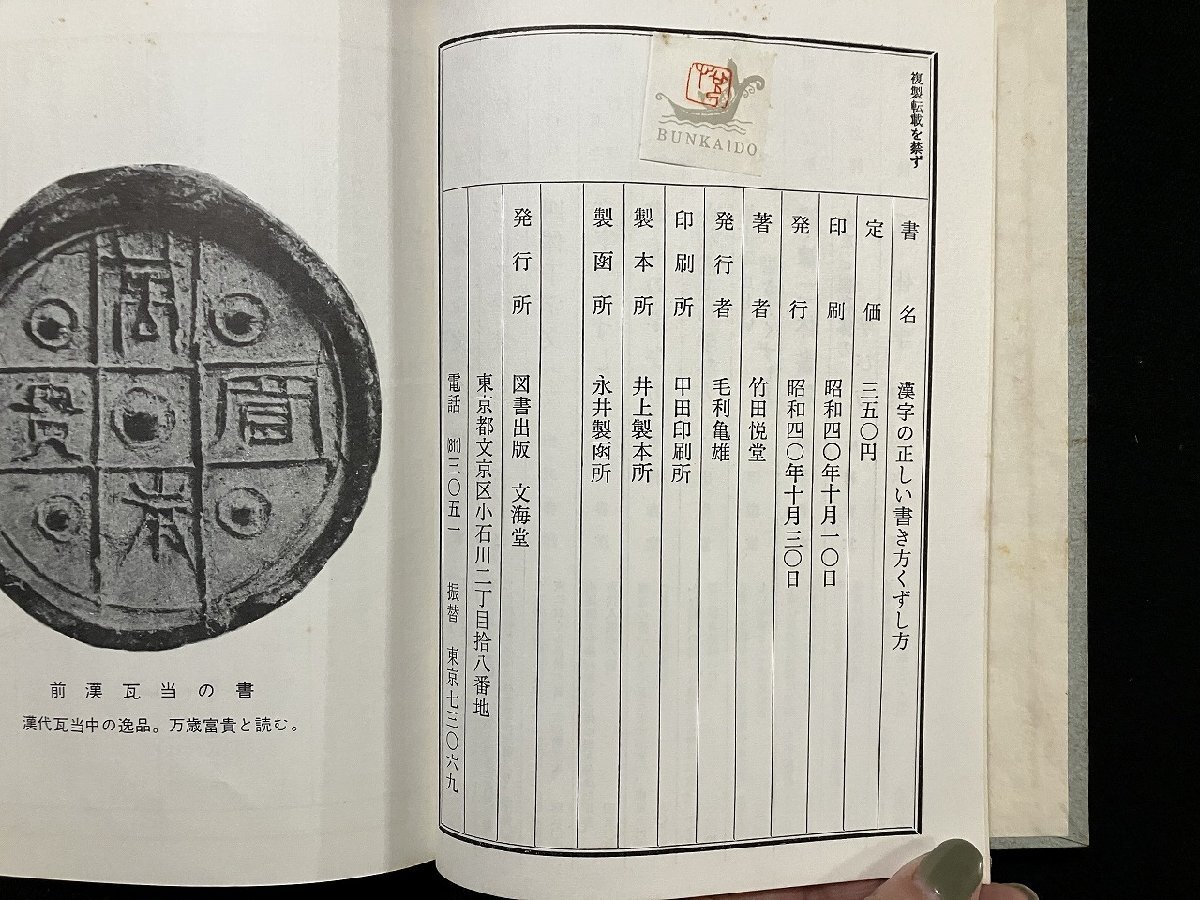 複製転載を禁ず
BUNKAIDO
書名 漢字の正しい書き方くずし方
定価 三五〇円
印刷 昭和四〇年十月一〇日
発行 昭和四〇年十月三〇日
著者 竹田悦堂
発行者 毛利亀雄
印刷所 甲田印刷所
製本所 井上製本所
製函所 永井製函所
発行所 図書出版 文海堂
東京都文京区小石川二丁目拾八番地
電話 (811)三〇五一 振替 東京七三〇六九
前漢瓦当の書
漢代瓦当中の逸品。万歳富貴と読む。